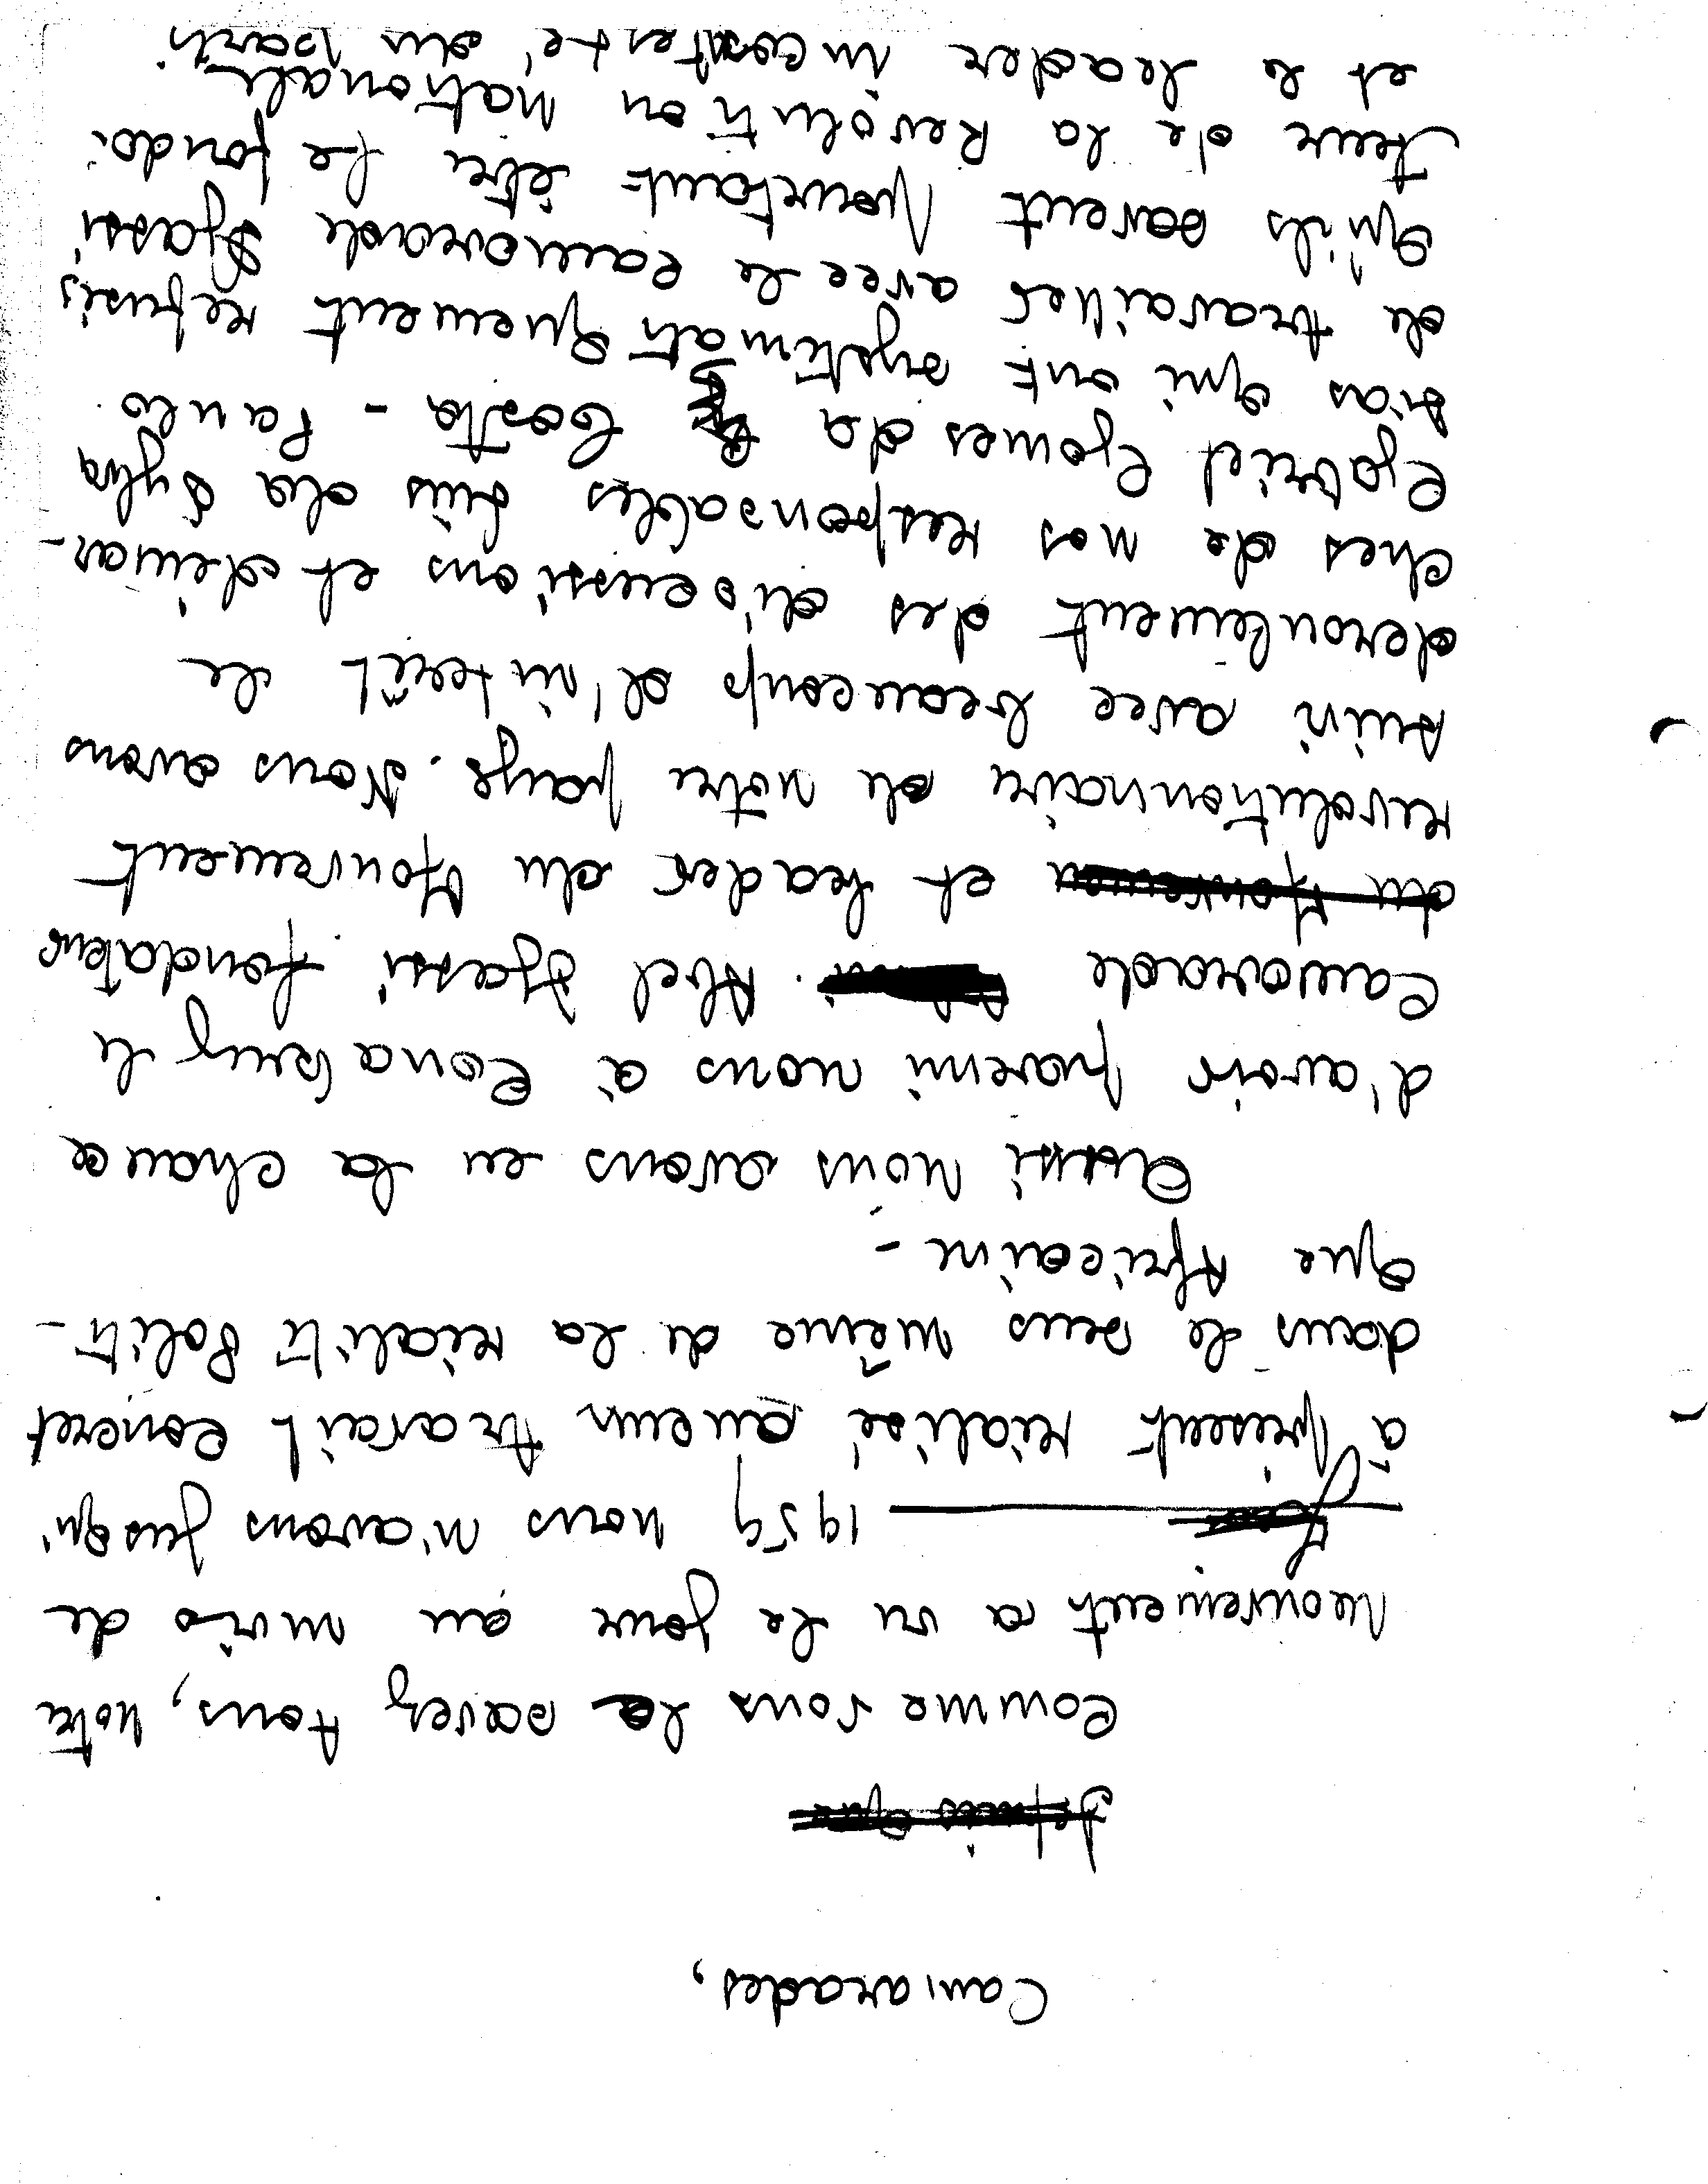 Camarades,
Jefuis que
Comme vous le savez tous, notre
mouvement a vu le jour au mois de
1959 nous n'avons jusqu'
à présent réalisé aucun travail concret
dans le sens même de la réalité Politi-
que Africaine -
Aussi nous avons eu la chance
d'avoir parmi nous à Conakry le
Camarade Abel Djassi fondateur
du Mouvemen et leader du Mouvement
révolutionnaire de notre pays. Nous avons
suivi avec beaucoup d'intérêt le
déroulement des discussions et démar-
ches de nos responsables Luis da Sylva
Gabriel Gomes da Costa - Paulo
Dias qui ont systématiquement refusés
de travailler avec le camarade Djassi
qu'ils savent pourtant être le fonda-
teur de la Révolution nationale
et le leader incontesté du Parti.